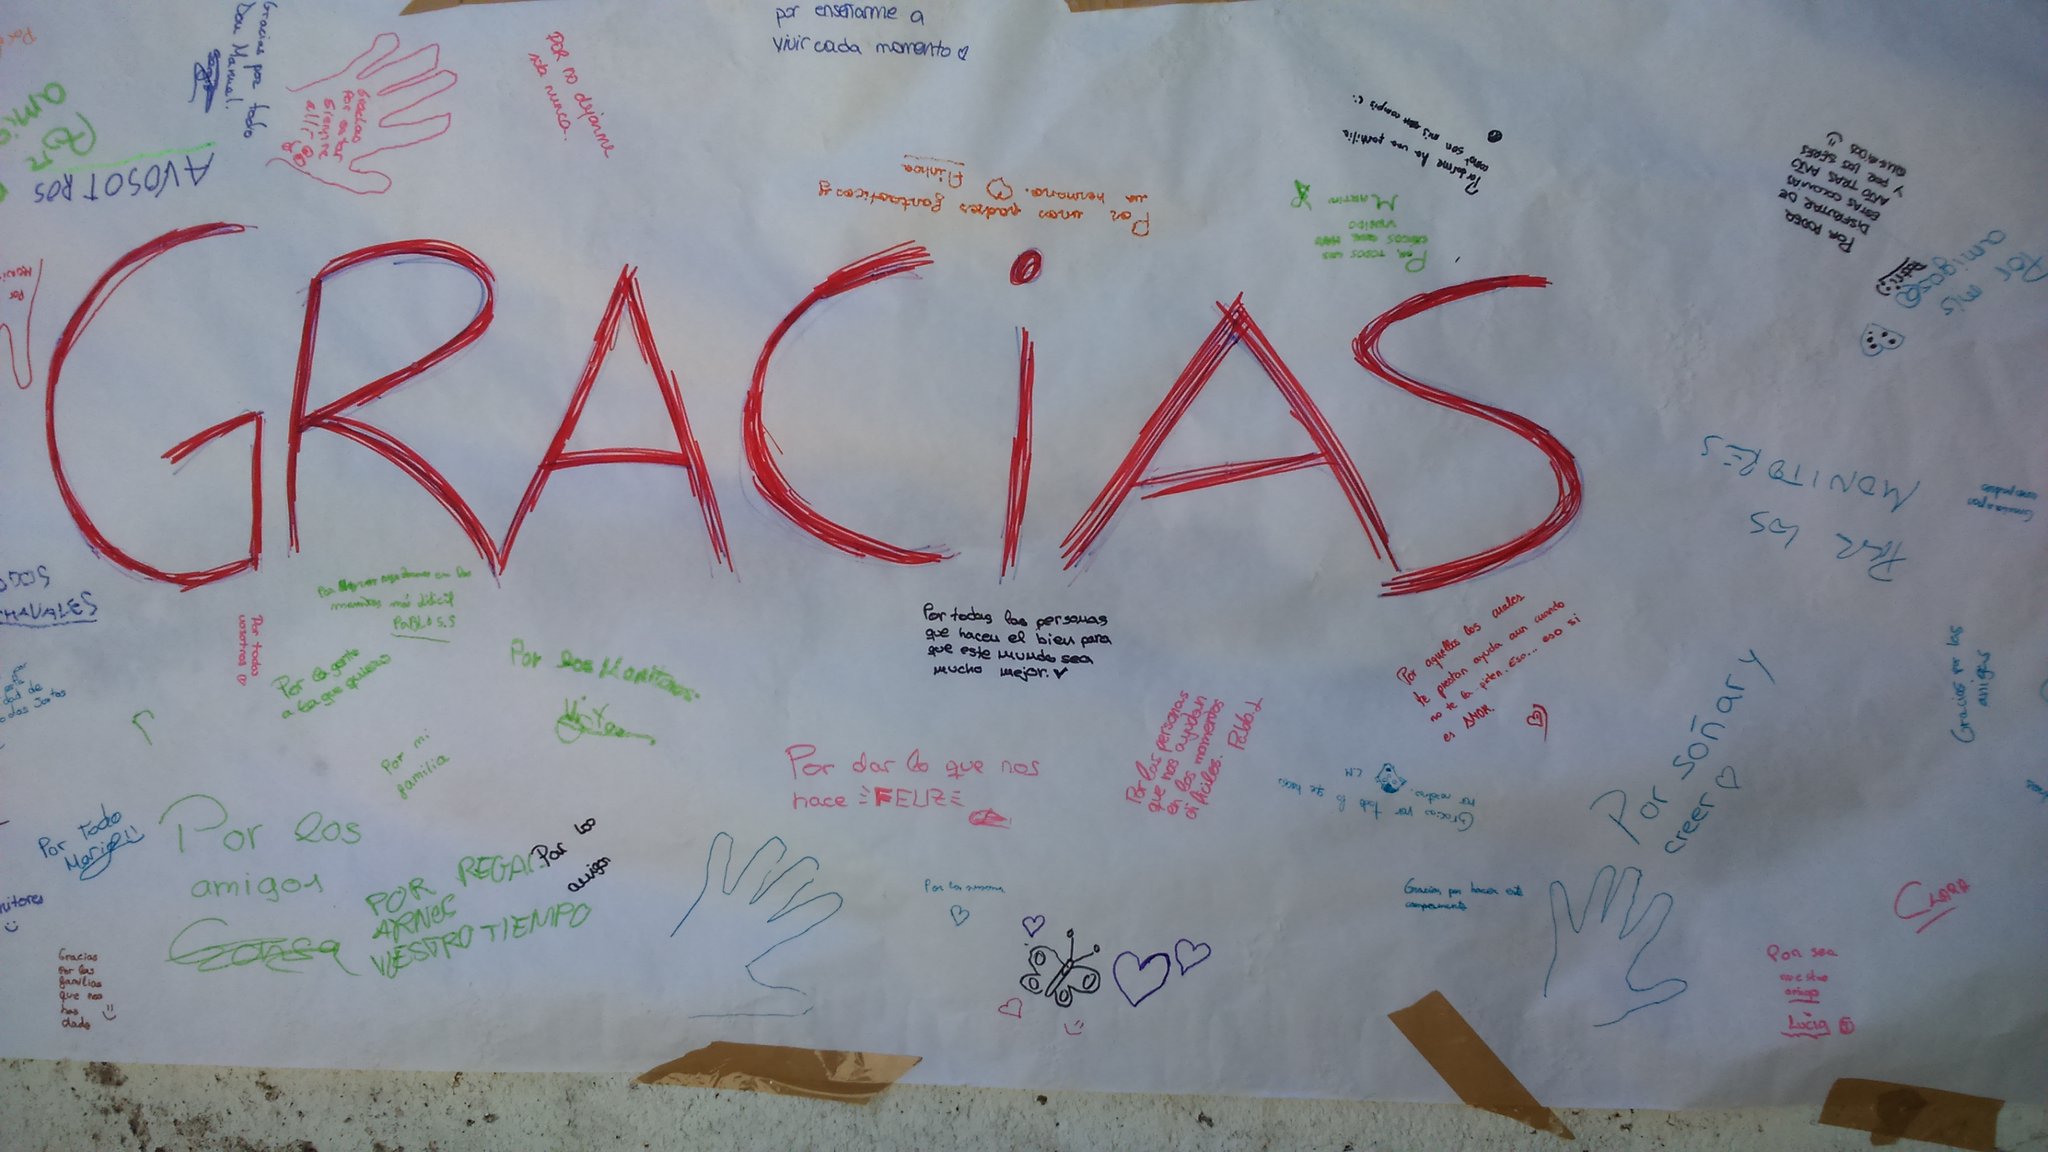 por enseñarme a
vivir cada momento
Gracias por todo
Don Manuel.
Gracias
por estar
siempre
allí
POR no dejarme
sola nunca.
AVOSOTROS
Por unos padres fantasticos y
una hermana.
Ainhoa
Por darme ha una familia
como son mis
POR TODOS LOS
CHICOS QUE HAN
VENIDO
MARTIN
POR PODER
DISFRUTAR DE
ESTAS COLONIAS
AÑO TRAS AÑO
Y POR LOS SERES
QUERIDOS
Patri
Por
mis
amigas
GRACIAS
POR LOS
MONITORES
CHAVALES
momentos más dificil
PABLO S.S
Por todo
vosotros
Por la gente
a la que quiero
Por los Monitores.
Por todas las personas
que hacen el bien para
que este mundo sea
mucho mejor.
Por aquellos los cuales
te prestan ayuda aun cuando
no te la piden. Eso... eso si
es AMOR
Gracias por las
amigas
Por mi
familia
Por dar lo que nos
hace FELIZ
Por las personas
que nos ayudan
en los momentos
dificiles. Pablo L
Gracias por todo lo que haces
por nosotros.
LM
Por soñar y
creer
Por Todo
Maria
Por los
amigos
POR REGAL
ARNOS
VUESTRO TIEMPO
Por los
amigos
Gracias por hacer este
campamento
CLARA
Gracias
Por las
familias
que nos
has
dado
Por ser
nuestro
amigo
Lucía